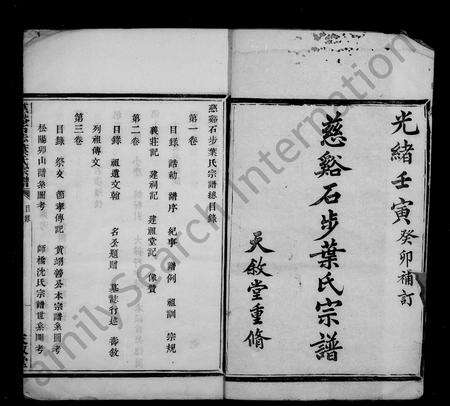 光緒壬寅癸卯補訂
慈谿石步葉氏宗譜
敘堂重脩
慈谿石步葉氏宗譜總目錄
第一卷
目錄 誥勅 譜序 紀事 譜例 祖訓 宗規
義莊記 建祠記 建祖堂記 像贊
第二卷
目錄 祖遺文翰 名公題贈 墓誌行述 壽敘
列祖傳文
第三卷
目錄 祭文 節孝傳記
松陽卯山譜系圖考 師橋沈氏宗譜世系圖考
目錄
Family Search International